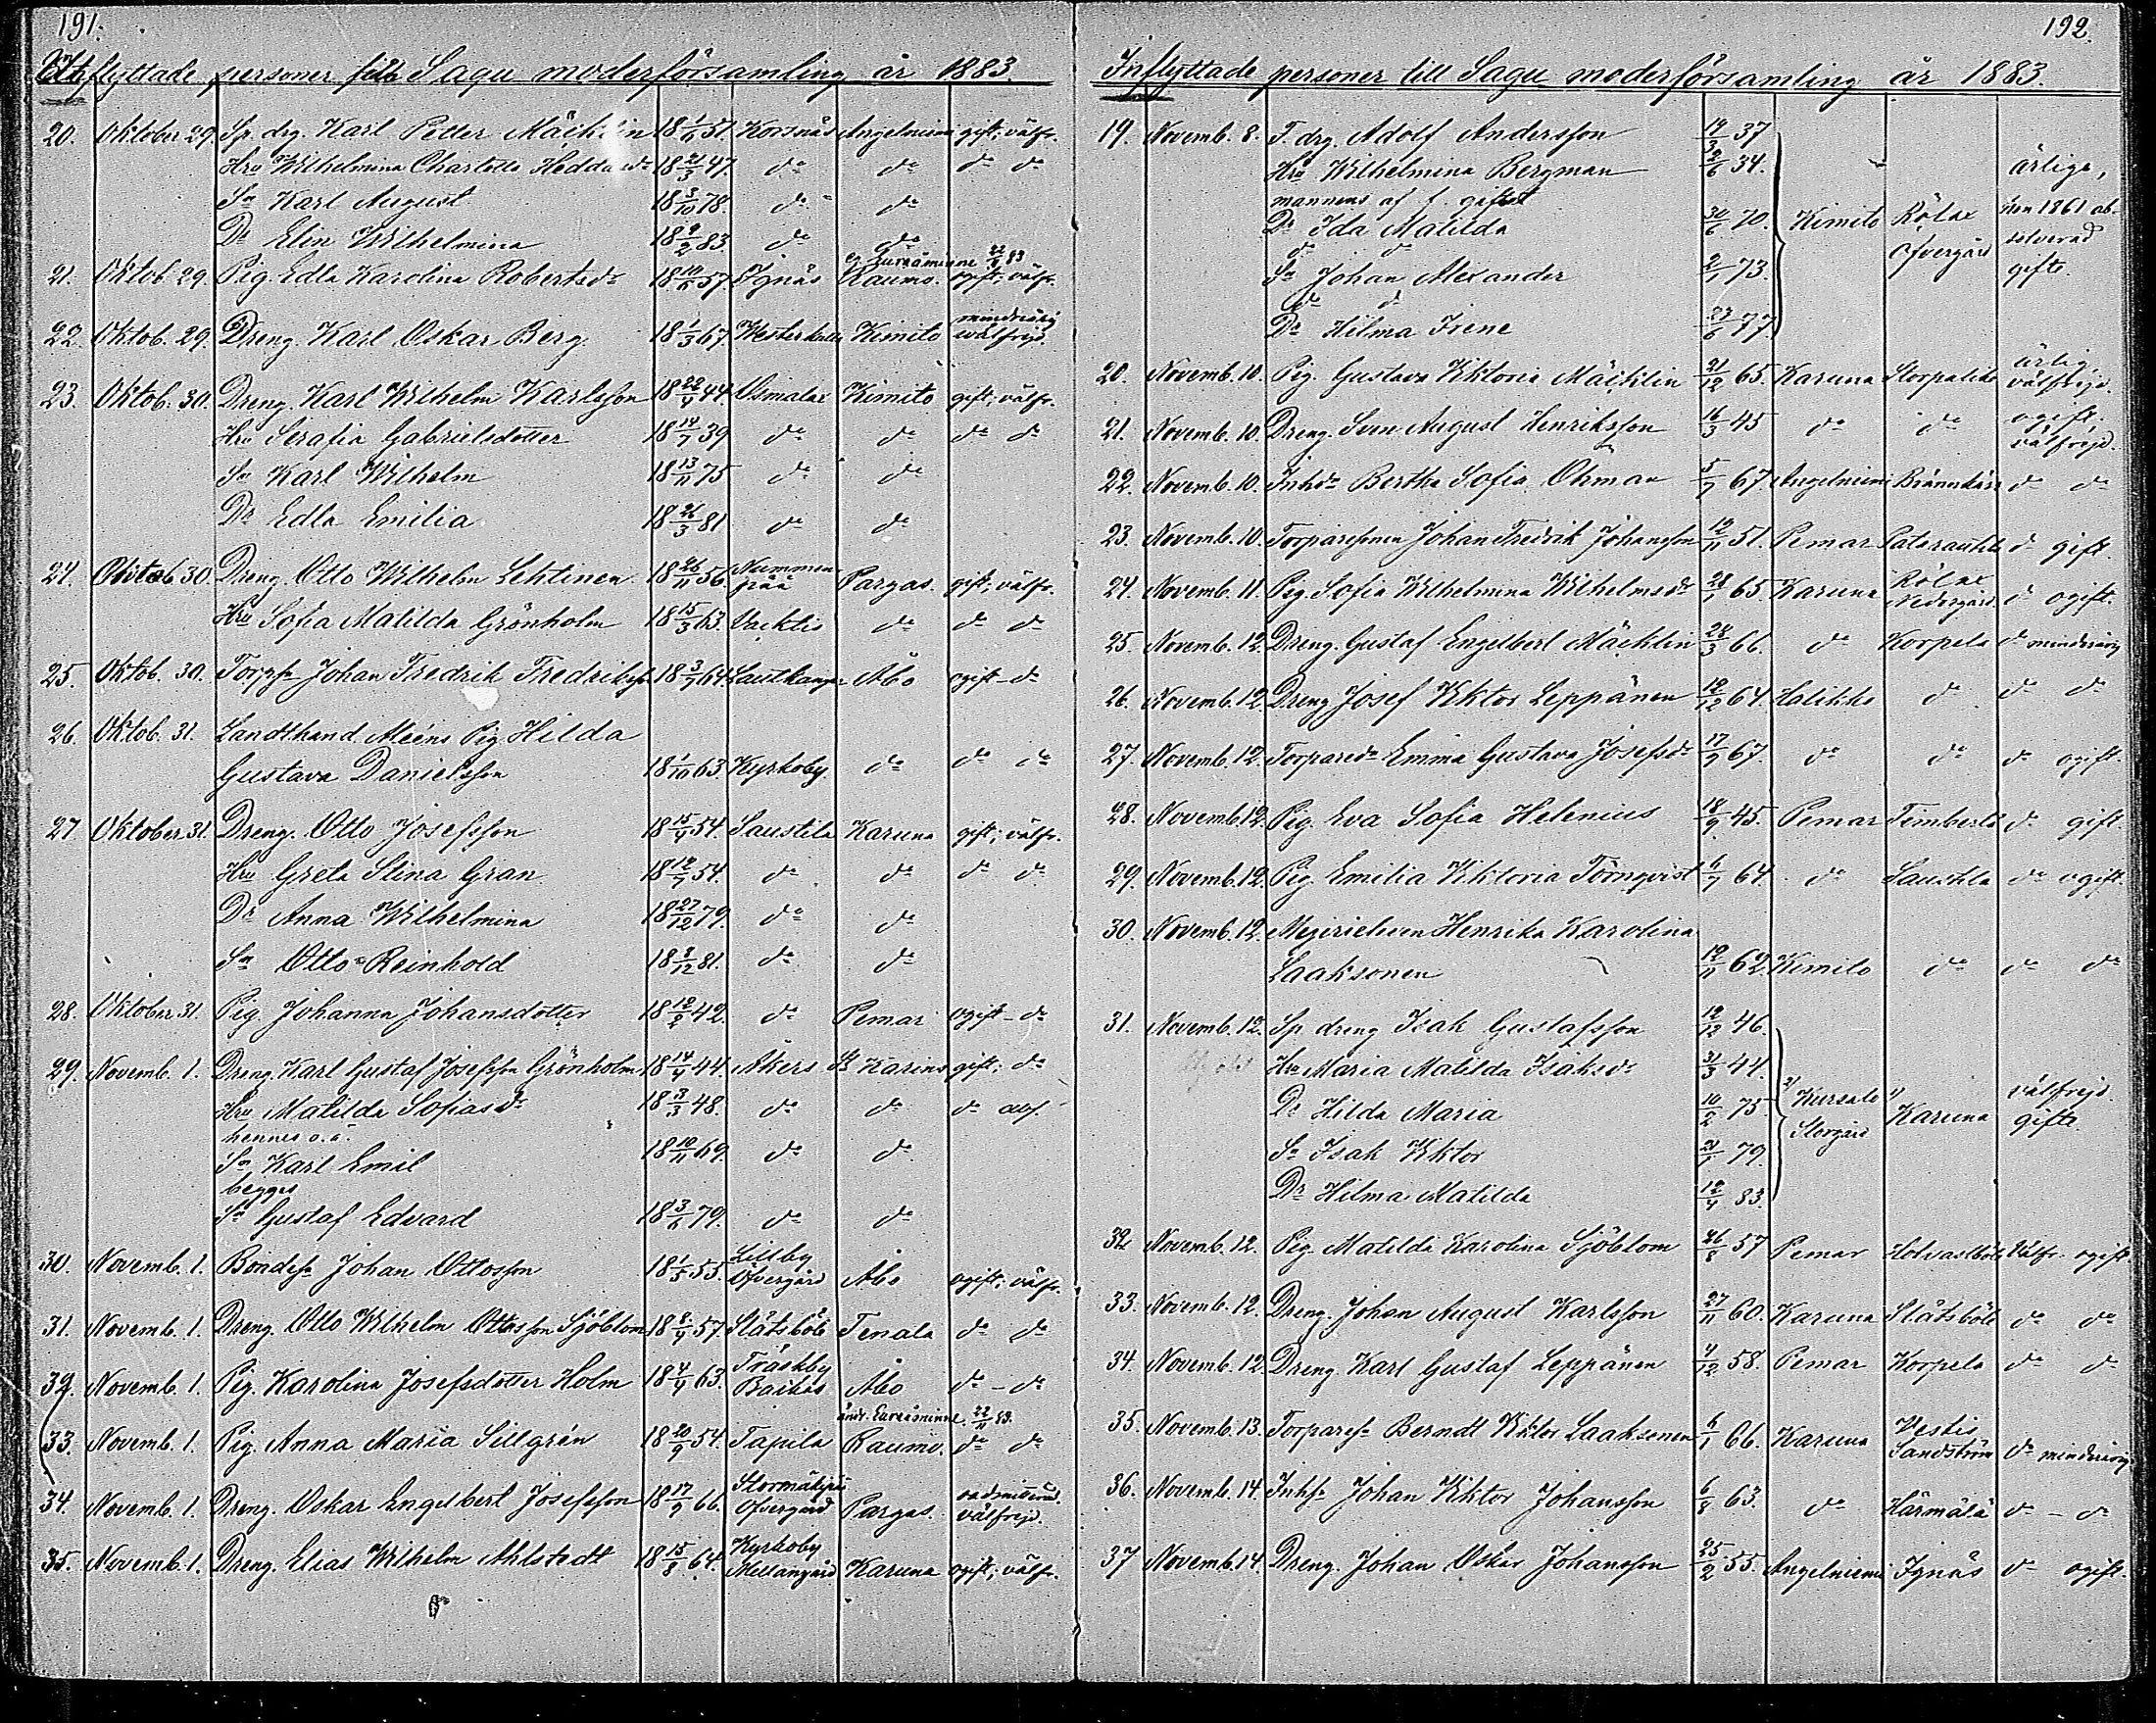 191.
Utflyttade personer från Sagu moderförsamling år 1883.
20. Oktober 29. Sp. drg. Karl Petter Mäcklin 18 1/6 51. Korsnäs Angelniemi gift; välfr.
Hru Wilhelmina Charlotta Heddasdr 18 21/3 47. do do do do
Sn Karl August 18 3/10 78. do do
Dr Elin Wilhelmina 18 9/2 83. do do
21. Oktob. 29. Pig. Edla Karolina Robertsdr 18 10/6 57 Ignäs Raumo. ogift; välfr.
22. Oktob. 29. Dreng. Karl Oskar Berg 18 1/3 67. Westerkulla Kimito minderårig välfrejd.
23. Oktob. 30. Dreng. Karl Wilhelm Karlsson 18 22/8 44. Osmalax Kimito gift; välfr.
Hru Serafia Gabrielsdotter 18 14/7 39 do do do do
Sn Karl Wilhelm 18 13/11 75 do do
Dr Edla Emilia 18 26/3 81 do do
24. Oktob 30. Dreng. Otto Wilhelm Lehtinen 18 26/11 56. Nummenpää Pargas. gift; välfr.
Hru Sofia Matilda Grönholm 18 15/3 63. Vacktis do do do
25. Oktob. 30. Torpsn Johan Fredrik Fredriksson 18 3/7 64. Sautkangas Åbo ogift - do
26. Oktob. 31. Landthand. Meéns Pig Hilda
Gustava Danielsson 18 1/10 63. Kyrkoby do do do
27 Oktober 31. Dreng. Otto Josefsson 18 15/4 54. Saustila Karuna gift; välfr.
Hru Greta Stina Gran 18 12/7 54. do do do do
Dr Anna Wilhelmina 18 27/12 79. do do
Sn Otto Reinhold 18 8/12 81. do do
28. Oktober 31. Pig. Johanna Johansdotter 18 12/2 42. do Pemar ogift - do
29. Novemb. 1. Dreng. Karl Gustaf Josefsson Grönholm 18 14/4 44. Åkers St Karins gift; do
Hru Matilda Sofiasdr 18 3/3 48. do do do
hennes o. ä.
Sn Karl Emil 18 10/11 69. do do
begges
Sn Gustaf Edvard 18 3/6 79. do do
30. Novemb. 1. Bondesn Johan Ottosson 18 1/5 55. Lillby Öfvergård Åbo ogift; välfr.
31. Novemb. 1. Dreng. Otto Wilhelm Ottosson Sjöblom 18 8/4 57. Slätsböle Tenala do do
32. Novemb. 1. Pig. Karolina Josefsdotter Holm 18 4/4 63. Träskby Åbo do - do
33. Novemb. 1. Pig. Anna Maria Sillgrén 18 20/9 54. Tapila Raumo. do do
34. Novemb. 1. Dreng. Oskar Engelbert Josefsson 18 17/9 66. Öfvergård Pargas. välfrejd.
35. Novemb. 1. Dreng. Elias Wilhelm Ahlstedt 18 15/8 64. Kyrkoby Mellangård Karuna ogift; välfr.
192.
Inflyttade personer till Sagu moderförsamling år 1883.
19. Novemb. 8. T. drg. Adolf Andersson 19/3 37
Hru Wilhelmina Bergman 2/6 34. ärliga,
mannens af f. giftet
Dr Ida Matilda 30/6 70. Kimito Rölax hon 1861 absolverad
do do
Sn Johan Alexander 2/7 73. Öfvergård gifte.
do do
Dr Hilma Irene 27/6 77.
20. Novemb. 10. Pig. Gustava Viktoria Mäcklin 21/12 65. Karuna Storpaltila ärlig, välfrejd.
21. Novemb. 10. Dreng. Sven August Henriksson 16/3 45 do do ogift. välfrejd.
22. Novemb. 10. Inhdr Bertha Sofia Öhman 5/7 67. Angelniemi Brännskärr do do
23. Novemb. 10. Torparesonen Johan Fredrik Johansson 19/11 51. Pemar do gift.
24. Novemb. 11. Pig. Sofia Wilhelmina Wilhelmsdr 28/1 65. Karuna Rölax Nedergård. do ogift.
25. Novemb. 12. Dreng. Gustaf Engelbert Mäcklin 28/3 66. do Korpela do minderårig
26. Novemb. 12. Dreng Josef Viktor Leppänen 12/12 64. Halikko do do do
27. Novemb. 12. Torparedr Emma Gustava Josefsdr 17/9 67. do do do ogift.
28. Novemb. 12. Pig. Eva Sofia Helenius 18/9 45. Pemar Timberla do gift.
29. Novemb. 12. Pig. Emilia Viktoria Törnqvist 6/7 64 do Saustila do ogift.
30. Novemb. 12. Mejerielven Henrika Karolina
Laaksonen 19/11 62. Kimito do do do
31. Novemb. 12. Sp dreng Isak Gustafsson 12/12 46.
Hru Maria Matilda Isaksdr 31/3 44.
Dr Hilda Maria 10/2 75. Kursale Storgård Karuna välfrejd. gifte.
Sn Isak Viktor 21/1 79.
Dr Hilma Matilda 12/4 83.
32 Novemb. 12. Pig. Matilda Karolina Sjöblom 26/8 57 Pemar Holvastböle välfr. ogift
33. Novemb. 12. Dreng. Johan August Karlsson 27/11 60. Karuna Slätsböle do do
34. Novemb. 12. Dreng. Karl Gustaf Leppänen 4/12 58. Pemar Korpela do do
35. Novemb. 13. Torparesn Berndt Viktor Laaksonen 6/1 66. Karuna Vestis Sandström do minderårig
36. Novemb. 14. Inhsn Johan Viktor Johansson 6/8 63. do Härmälä do - do
37 Novemb. 14. Dreng. Johan Oskar Johansson 25/2 55. Angelniemi Ignäs do ogift.